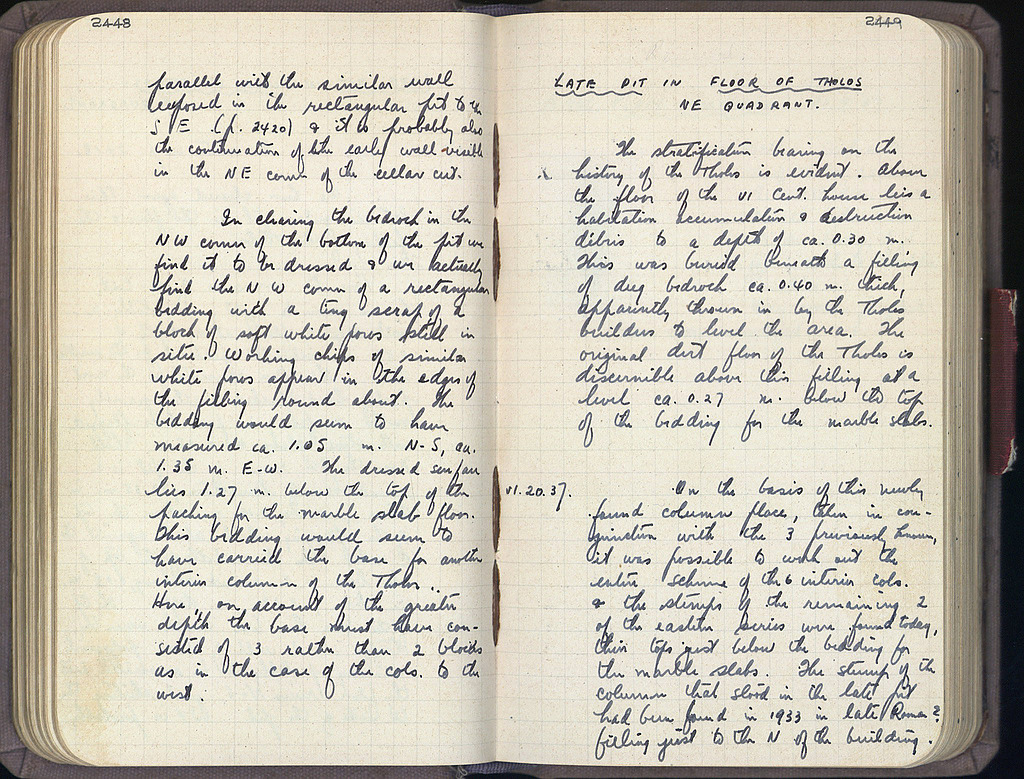 2448
parallel with the similar wall
exposed in the rectangular pit to the
S E (p. 2420) & it is probably also
the continuation of the early wall visible
in the NE corner of the cellar cut.
In clearing the bedrock in the
NW corner of the bottom of the pit we
find it to be dressed & we actually
find the N W corner of a rectangular
bedding with a tiny scrap of a
block of soft white poros still in
situ. Working chips of similar
white poros appear in the edges of
the filling round about. The
bedding would seem to have
measured ca. 1.05 m. N-S, ca.
1.35 m. E-W. The dressed surface
lies 1.27 m. below the top of the
packing for the marble slab floor.
This bedding would seem to
have carried the base for another
interior column of the Tholos..
Here, on account of the greater
depth the base must have con-
sisted of 3 rather than 2 blocks
as in the case of the cols. to the
west.
2449
LATE PIT IN FLOOR OF THOLOS
NE QUADRANT.
The stratification bearing on the
history of the Tholos is evident. Above
the floor of the VI Cent. house lies a
habitation accumulation & destruction
débris to a depth of ca. 0.30 m.
This was buried beneath a filling
of dug bedrock ca. 0.40 m. thick,
apparently thrown in by the Tholos
builders to level the area. The
original dirt floor of the Tholos is
discernible above this filling at a
level ca. 0.27 m. below the top
of the bedding for the marble slabs.
VI.20.37. On the basis of this newly
found column place, taken in con-
junction with the 3 previously known,
it was possible to work out the
entire scheme of the 6 interior cols.
& the stumps of the remaining 2
of the eastern series were found today,
their tops just below the bedding for
the marble slabs. The stump of the
column that stood in the late pit
had been found in 1933 in late Roman ?
filling just to the N of the building.